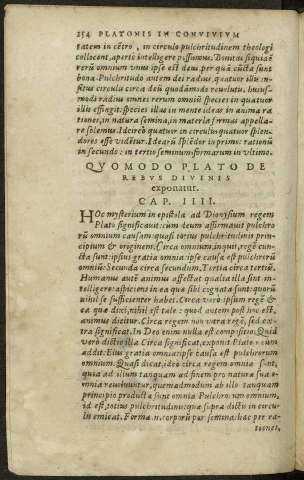 154 PLATONIS IN CONVIVIUM
tatem in cẽtro, in circulo pulchritudinem theologi
collocent, apertè intelligere possumus. Bonitas siquidẽ
rerũ omnium unus ipse est deus per quẽ cũcta sunt
bona. Pulchritudo autem dei radius, quatuor illis in-
situs circulis circa deũ quodãmodo reuolutis. huius-
modi radius omnes rerum omniũ species in quatuor
illis effingit: species illas in mente ideas in anima ra
tiones, in natura semina, in materia formas appella-
re solemus. Idcirco quatuor in circulis quatuor splen-
dores esse vidẽtur. Idearũ splẽdor in primo: rationũ
in secundo: in tertio seminum: formarum in vltimo.
QVOMODO PLATO DE
REBVS DIVINIS
exponatur.
CAP. IIII.
HOc mysterium in epistola ad Dionysium regem
Plato significauit: cum deum affirmauit pulchro
rũ omnium causam: quasi totius pulchritudinis prin-
cipium & originem. Circa omnium, inquit, regẽ cun-
cta sunt: ipsius gratia omnia: ipse causa est pulchrorũ
omniũ: Secunda circa secundum, Tertia circa tertiũ.
Humanus autẽ animus affectat qualia illa sint in-
telligere: aspiciens in ea quæ sibi cognata sunt: quorũ
nihil se sufficienter habet. Circa verò ipsum regẽ &
ea quæ dixi, nihil est tale: quod autem post hoc est,
animus dicitur. Circa regem non intra regẽ, sed ex-
tra significat. In Deo enim nulla est compositio. Quid
verò dictio illa Circa significat, exponit Plato: cum
addit. Eius gratia omnia: ipse causa est pulchrorum
omnium. Quasi dicat, ideo circa regem omnia sunt,
quia ad illum tanquam ad finem pro natura sua o-
mnia reuoluuntur, quemadmodum ab illo tanquam
principio producta sunt omnia Pulchrorum omnium,
id est, totius pulchritudinis: quæ suprà dictis in circu-
lis emicat. Formæ n. corporũ per semina: hæc per ra-
tiones,